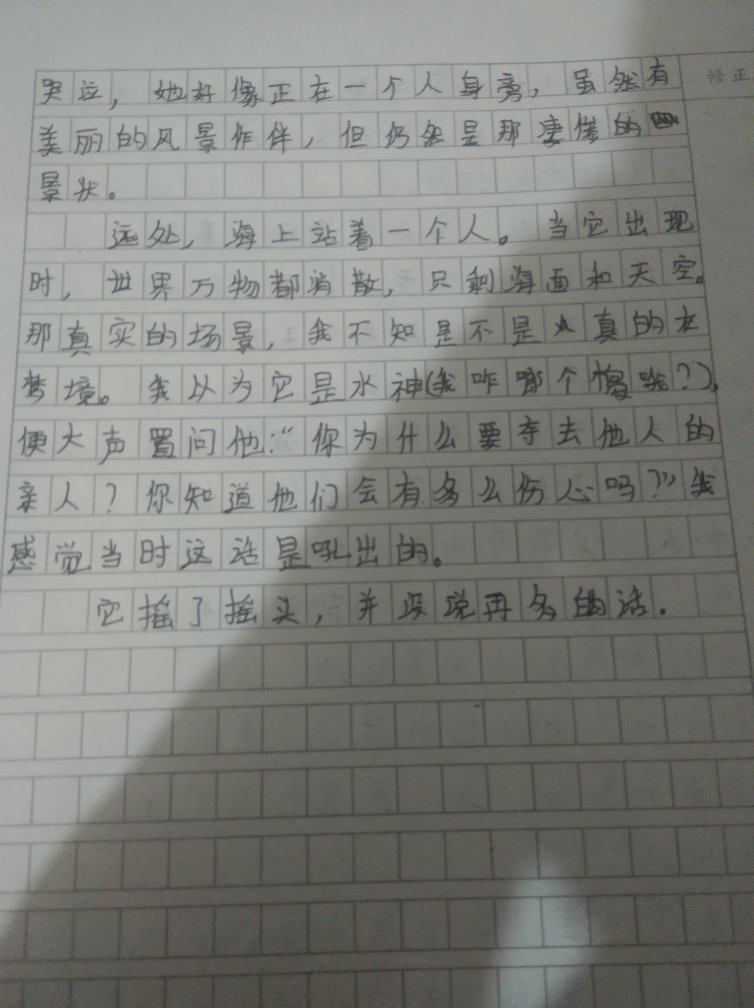 哭泣，她好像正在一个人身旁，虽然有
美丽的风景作伴，但仍然是那凄惨的
景状。
远处，海上站着一个人。当它出现
时，世界万物都消散，只剩海面和天空。
那真实的场景，我不知是不是真的在
梦境。我以为它是水神(我咋哪个想呢？)，
便大声置问他：“你为什么要夺去他人的
亲人？你知道他们会有多么伤心吗？”我
感觉当时这话是吼出的。
它摇了摇头，并没说再多的话.
修正